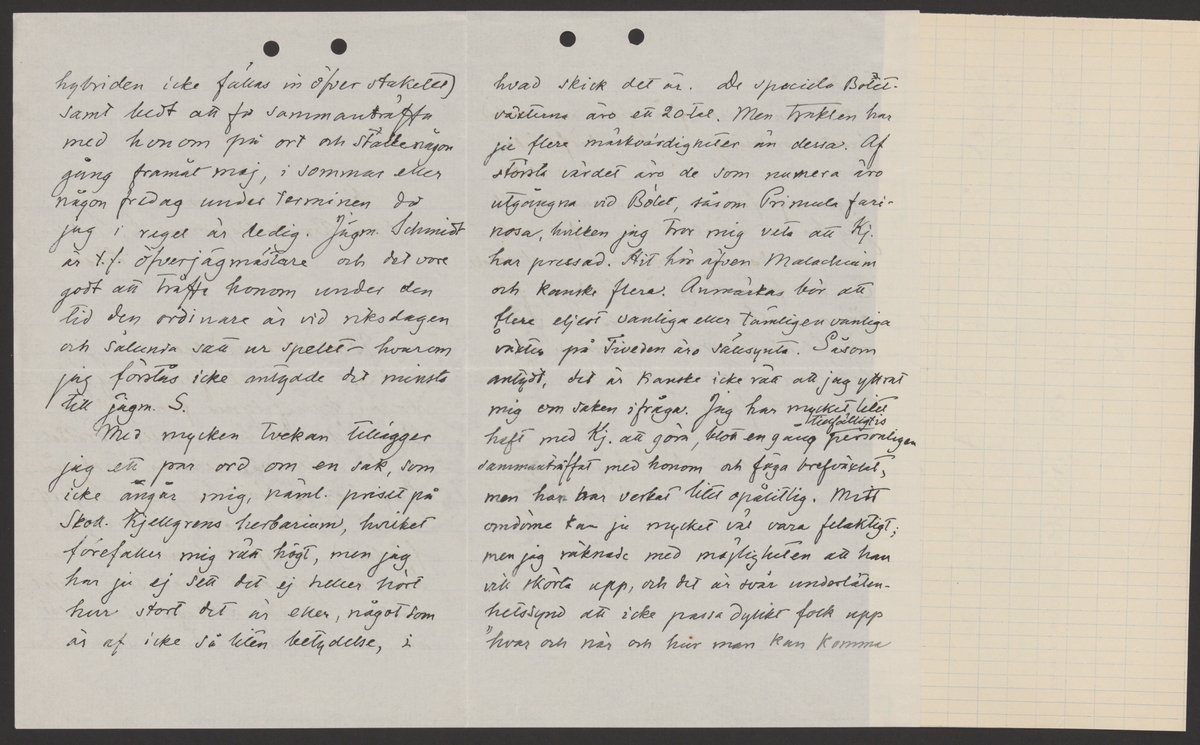 hybriden icke fällas in öfver staketet)
samt bedt att få sammanträffa
med honom på ort och ställe någon
gång framåt maj, i sommar eller
någon fredag under terminen då
jag i regel är ledig. Jägm. Schmidt
är t.f. öfverjägmästare och det vore
godt att träffa honom under den
tid den ordinare är vid riksdagen
och sålunda satt ur spelet – hvarom
jag förstås icke antydde det minsta
till jägm. S.
Med mycken tvekan tillägger
jag ett par ord om en sak, som
icke ångår mig, näml. priset på
Skoll. Kjellgrens herbarium, hvilket
förefaller mig rätt högt, men jag
har ju ej sett det ej heller hört
hur stort det är eller, något som
är af icke så liten betydelse, i
hvad skick det är. De speciela Bölet-
växterna äro ett 20-tal. Men trakten har
ju flera märkvärdigheter än dessa. Af
största värdet äro de som numera äro
utgångna vid Bölet, såsom Primula fari-
nosa, hvilken jag tror mig veta att Kj.
har pressad. Hit hör äfven Malachium
och kanske flera. Anmärkas bör att
flere eljest vanliga eller tämligen vanliga
växter på Tiveden äro sällsynta. Såsom
antydt, det är kanske icke rätt att jag yttrat
mig om saken ifråga. Jag har mycket litet
haft med Kj. att göra, blott en gång tillfälligtvis personligen
sammanträffat med honom och föga brefväxlat,
men han har verkat litet opålitlig. Mitt
omdöme kan ju mycket väl vara felaktigt;
men jag räknade med möjligheten att han
vill skörta upp, och det är svår underlåten-
hetssynd att icke passa dylikt folk upp
"hvar och när och hur man kan komma